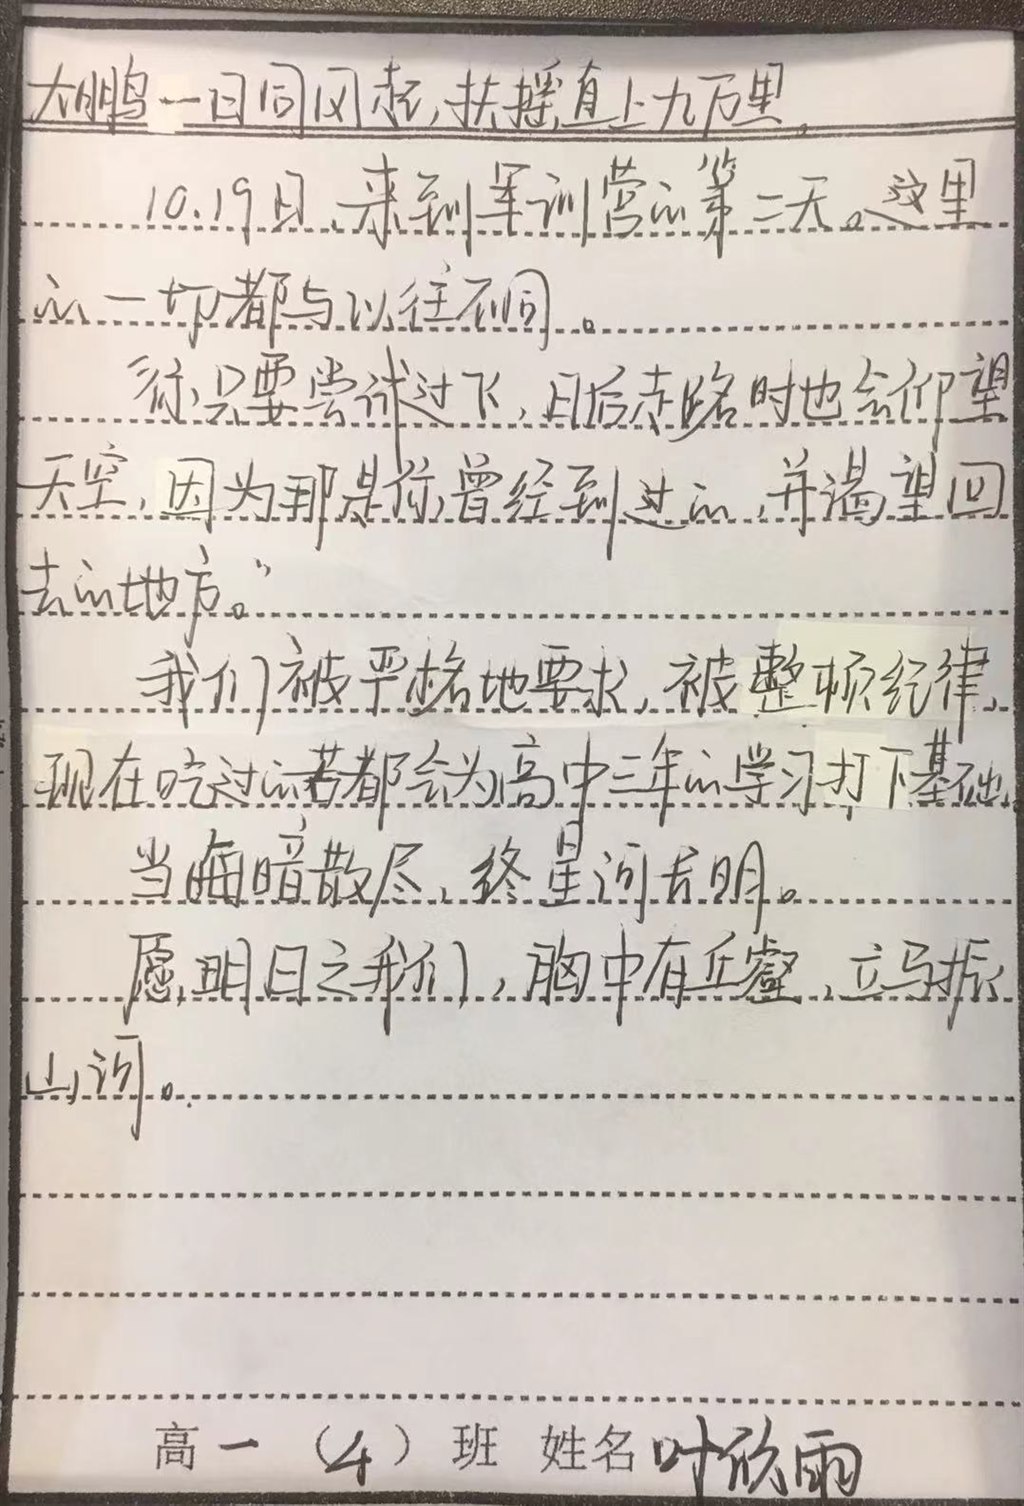 大鹏一日同风起，扶摇直上九万里。
10.19日，来到军训营的第二天。这里
的一切都与以往不同。
你只要尝试过飞，日后走路时也会仰望
天空，因为那是你曾经到过的，并渴望回
去的地方。”
我们被严格地要求，被整顿纪律，
现在吃过的苦都会为高中三年的学习打下基础。
当晦暗散尽，终星河长明。
愿明日之我们，胸中有丘壑，立马振
山河。
高一（4）班 姓名叶欣雨